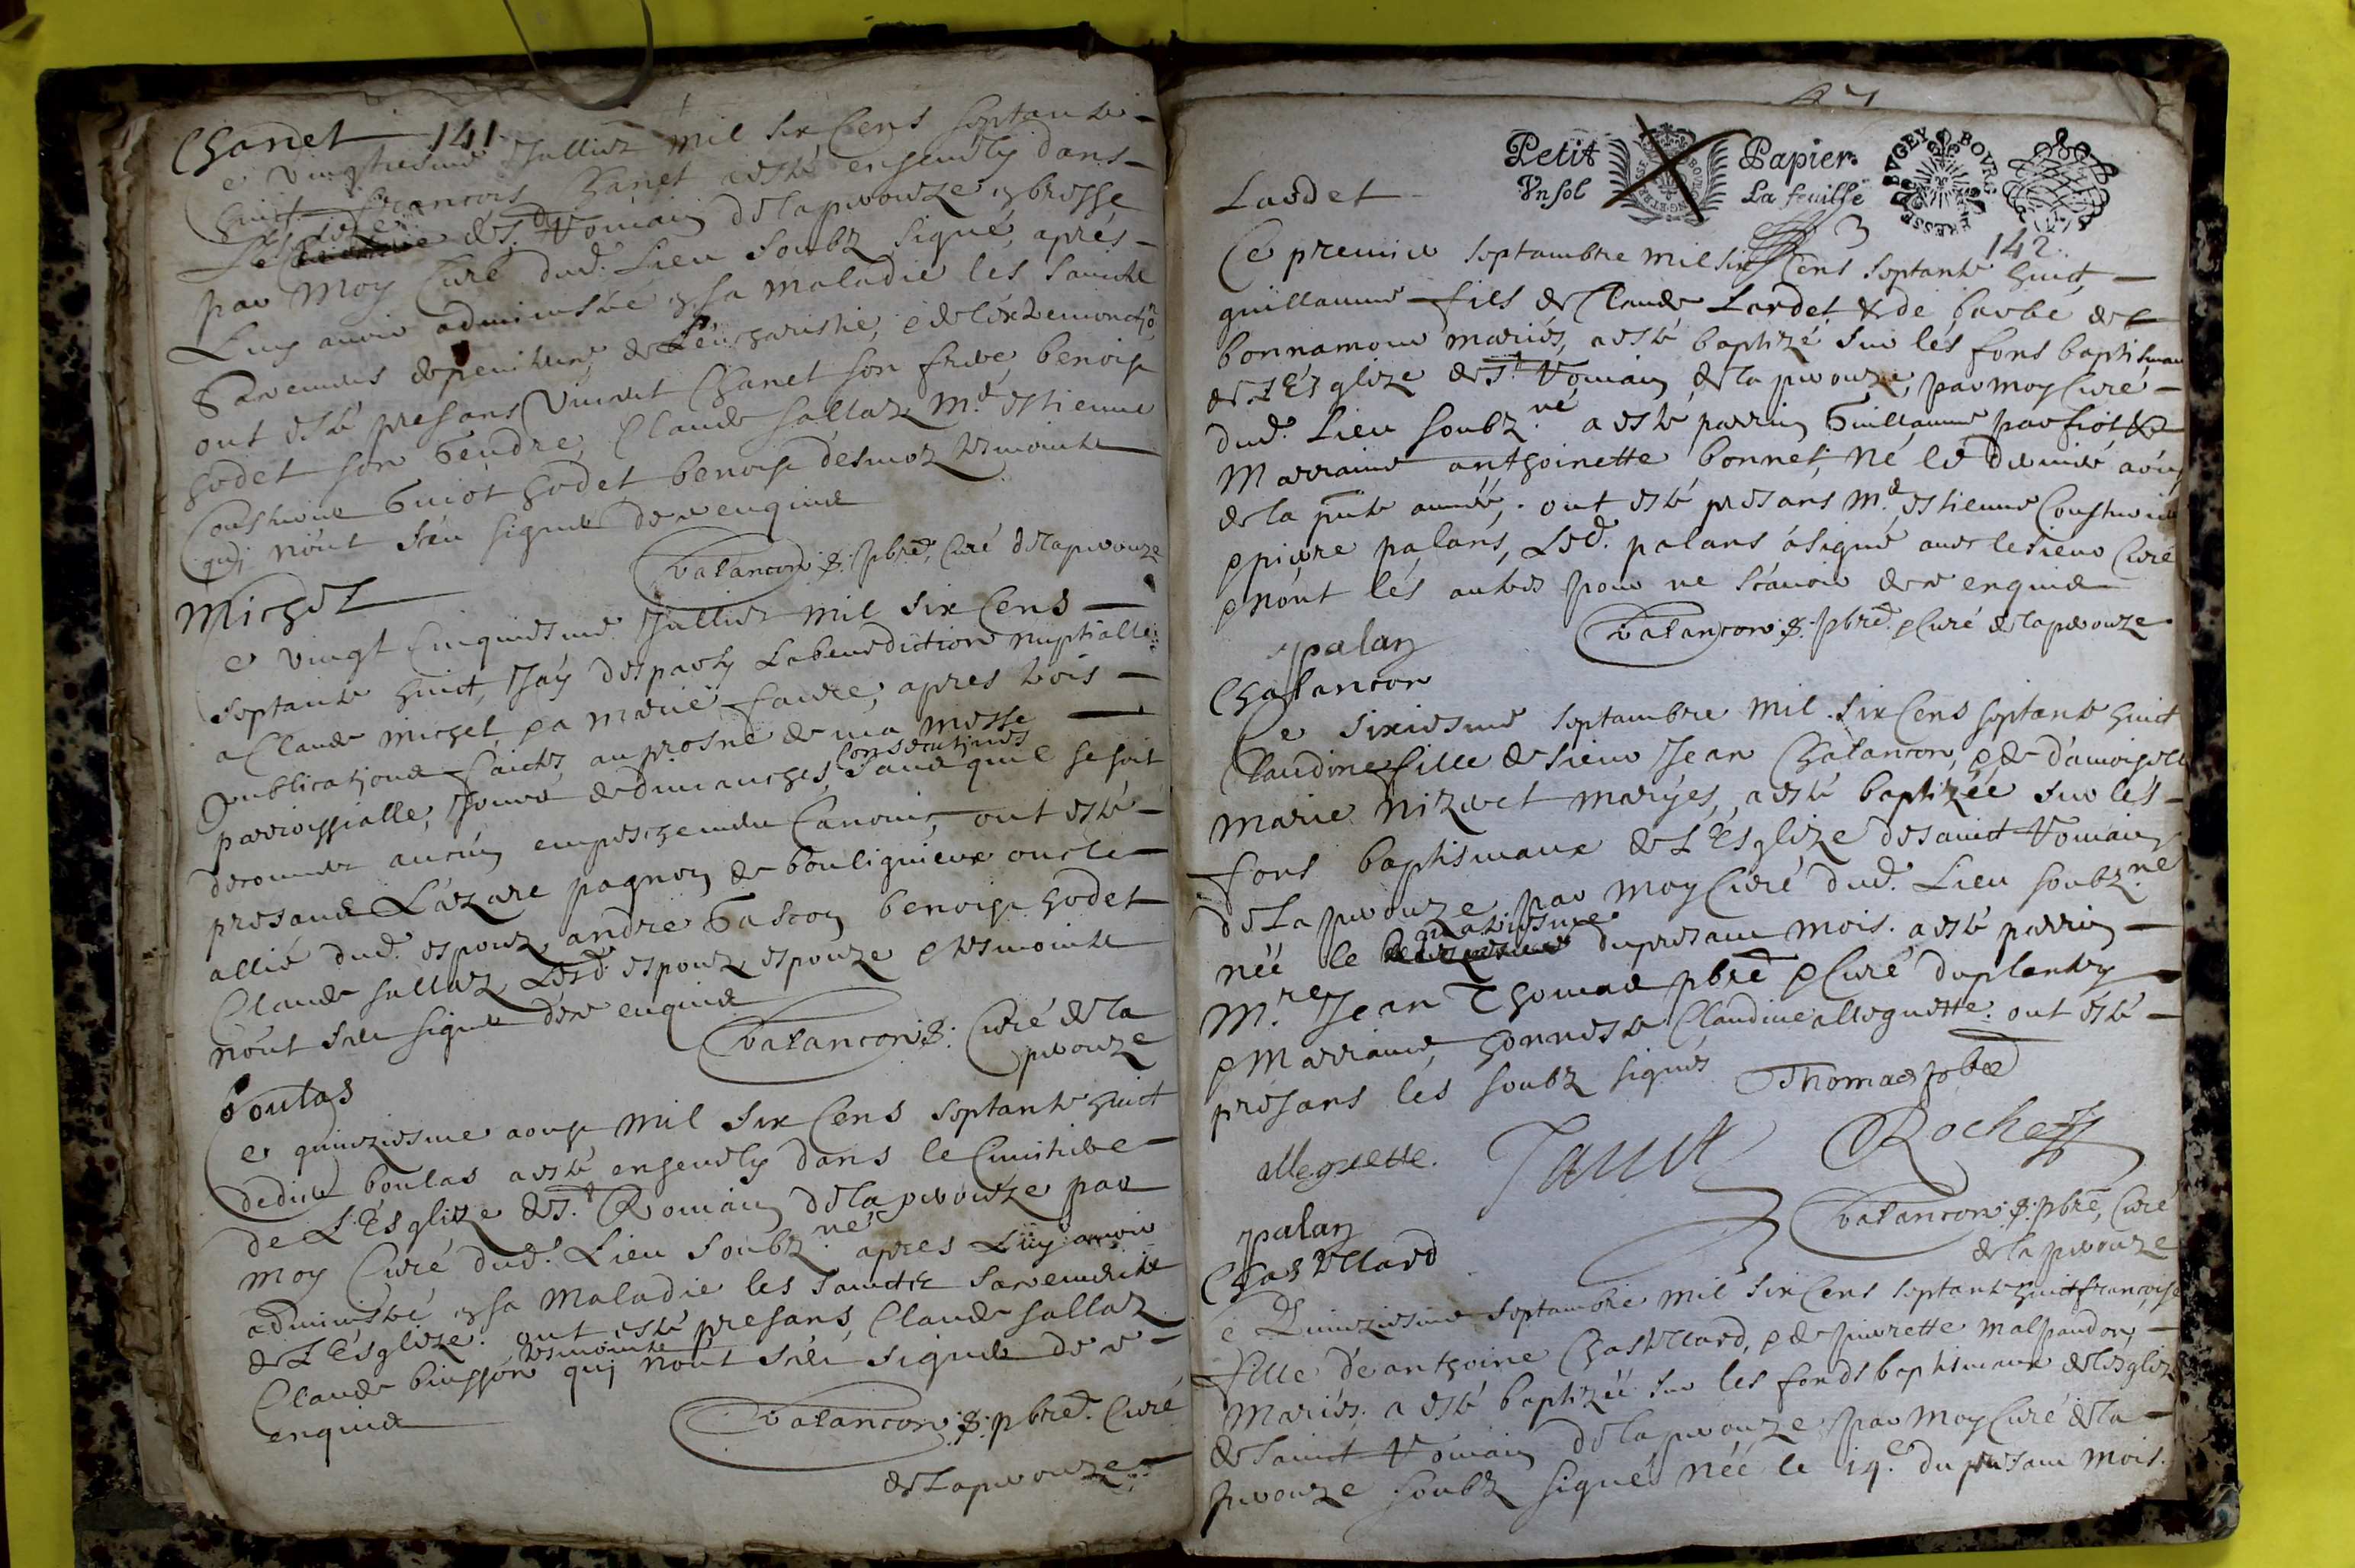 Chanet 141
Ce vingtiesme Juillet mil six Cens septante
huict francois Chanet a esté enseuely dans
L'Esglize de St Romain de la peyrouze en bresse
par Moy Curé dud. Lieu soubz signé, apres
Luy auoir administré en sa maladie les saincts
Sacremens de penitence, de L'éucharistie, e de l'éxtremonction
ont esté presans Vincent Chanet son frere, benoist
Godet son Gendre, Claude sallaz Md. estienne
Guiot Godet benoist desmoz tesmointz
qui n'ont sceu signer de ce enquis
Chatancon pbre, Curé de la peyrouze
Michel
Ce vingt Cinquiesme Juillet mil six Cens
septante huict, J'ay desparty La benediction nuptialle
a Claude michel, e a marie faure, apres trois
publications faictes au prosne de ma messe
parroissialle, Jours de dimanches Consecutives sans qu'il se soit
decouuert aucun empeschement Canonic, ont esté
presans Lazare pagnon de bouligneux oncle
allié dud. espouz, andre Gascon benoist Godet
Claude sallaz Lesd. espouz, espouze e tesmointz
n'ont sceu signer de ce enquis
Chatancon Curé de la
peyrouze
boulas
Ce quinziesme aoust mil six Cens septante huict
dedier boulas a esté enseuely dans le Cimitiere
de L'Esglize de St. Romain de la peyrouze par
Moy Curé dud. Lieu soubz.né apres Luy auoir
administré en sa Maladie les saincts Sacrementz
de L'Esglize. ont esté presans Claude sallaz
Claude buisson tesmointz qui n'ont sceu signer de ce
enquis
Chatancon pbre. Curé
de La peyrouze
Petit Papier
Un sol La feuille
BRESSE BOURG BUGEY
142
Lardet
Ce premier septambre mil six Cens septante huict
guillaume fils de Claude Lardet e de barbe de
bonnamour mariés, a esté baptizé sur les fons baptismaux
de L'Esglize de St. Romain de la peyrouze, par moy Curé
dud. Lieu soubz.né a esté parrin Guillaume parfiot e
Marraine anthoinette bonnet, né le dernier aoust
de la pnte année. ont esté presans Md. estienne
e pierre palans, Led. palans a signé auec le sieur Curé
e nont les autres pour ne scauoir de ce enquis
palan
Chatancon pbre e Curé de la peyrouze
Chatancon
Ce sixiesme septambre mil six Cens septante huict
Claudine fille de sieur Jean Chatancon, e de damoiselle
Marie nizeret maryés, a esté baptizée sur les
fons baptismaux de L'Esglize de sainct Romain
de La peyrouze par moy Curé dud. Lieu soubz.né
née le quatriesme du presant mois. a esté parrin
M.re Jean Thomas pbre e Curé du plantey
e Marraine, honneste Claudine alleguette. ont esté
présans les soubz signés
Thomas pbre
alleguette.
Rochet
palan
Chatancon pbre, Curé
de la peyrouze
Chastellard
Ce Quinziesme septambre mil six Cens septante huict francoise
fille de anthoine Chastellard, e de pierrette malpaudon,
Mariés. a esté baptizée sur les fonds baptismaux de l'esglize
de sainct Romain de la peyrouze, par moy Curé de la
peyrouze soubz signé née le 14.e du presant mois.